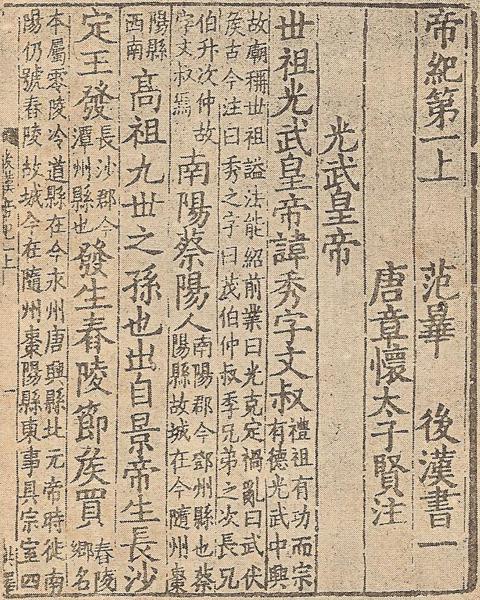 帝紀第一上 范曅 後漢書一
唐章懷太子賢注
光武皇帝
世祖光武皇帝諱秀字文叔禮祖有功而宗
有德光武中興
故廟稱世祖諡法能紹前業曰光克定禍亂曰武伏
侯古今注曰秀之字曰茂伯仲叔季兄弟之次長兄
伯升次仲故
字文叔焉南陽蔡陽人南陽郡今鄧州縣也蔡
陽縣故城在今隨州棗
陽縣
西南高祖九世之孫也出自景帝生長沙
定王發長沙郡今
潭州縣也發生舂陵節侯買舂陵
鄉名
本屬零陵泠道縣在今永州唐興縣北元帝時徙南
陽仍號舂陵故城今在隨州棗陽縣東事具宗室四